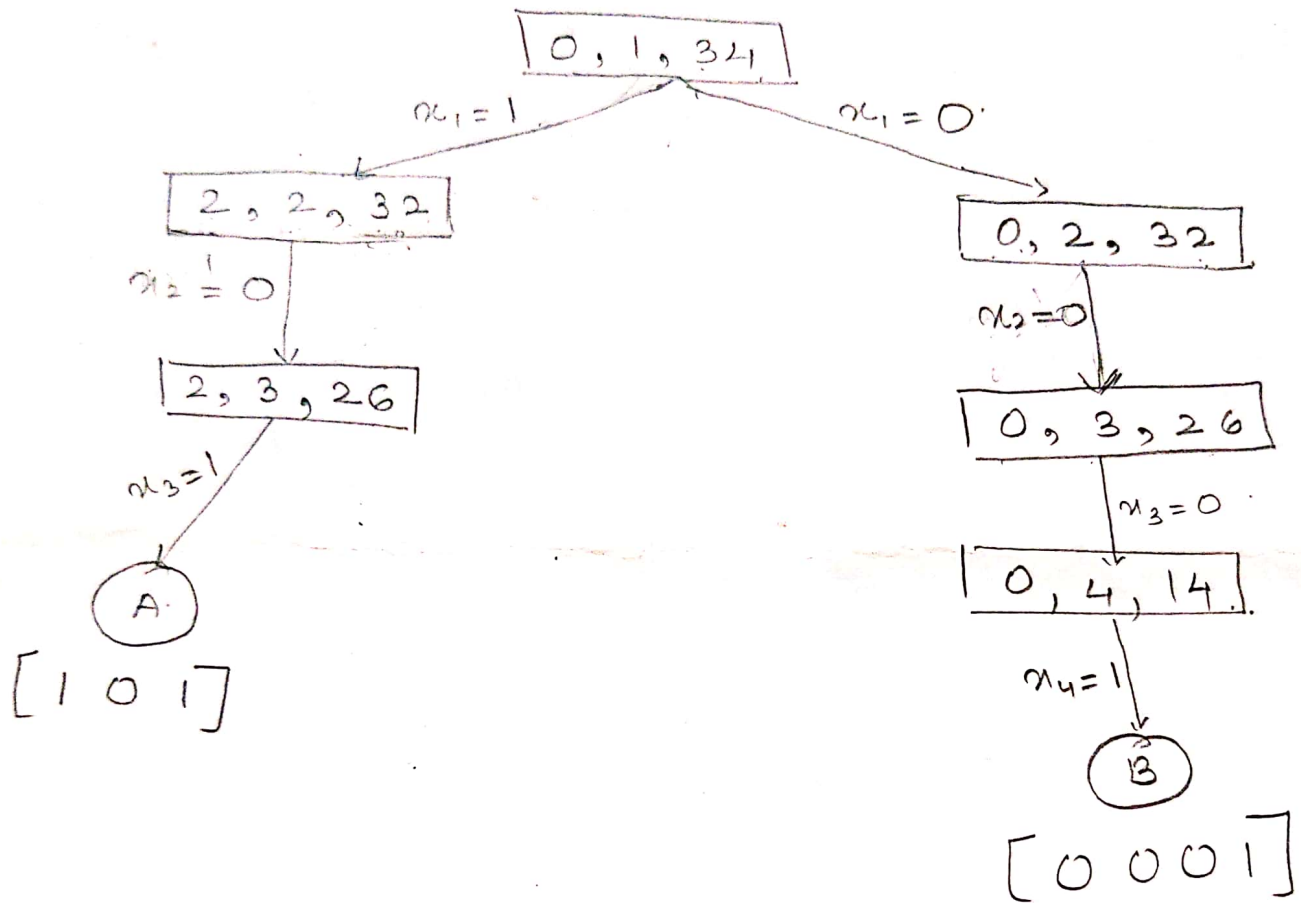 0, 1, 34
x₁ = 1
x₁ = 0
2, 2, 32
0, 2, 32
x₂ = 0
x₂ = 0
2, 3, 26
0, 3, 26
x₃ = 1
x₃ = 0
0, 4, 14
A
[1 0 1]
x₄ = 1
B
[0 0 0 1]